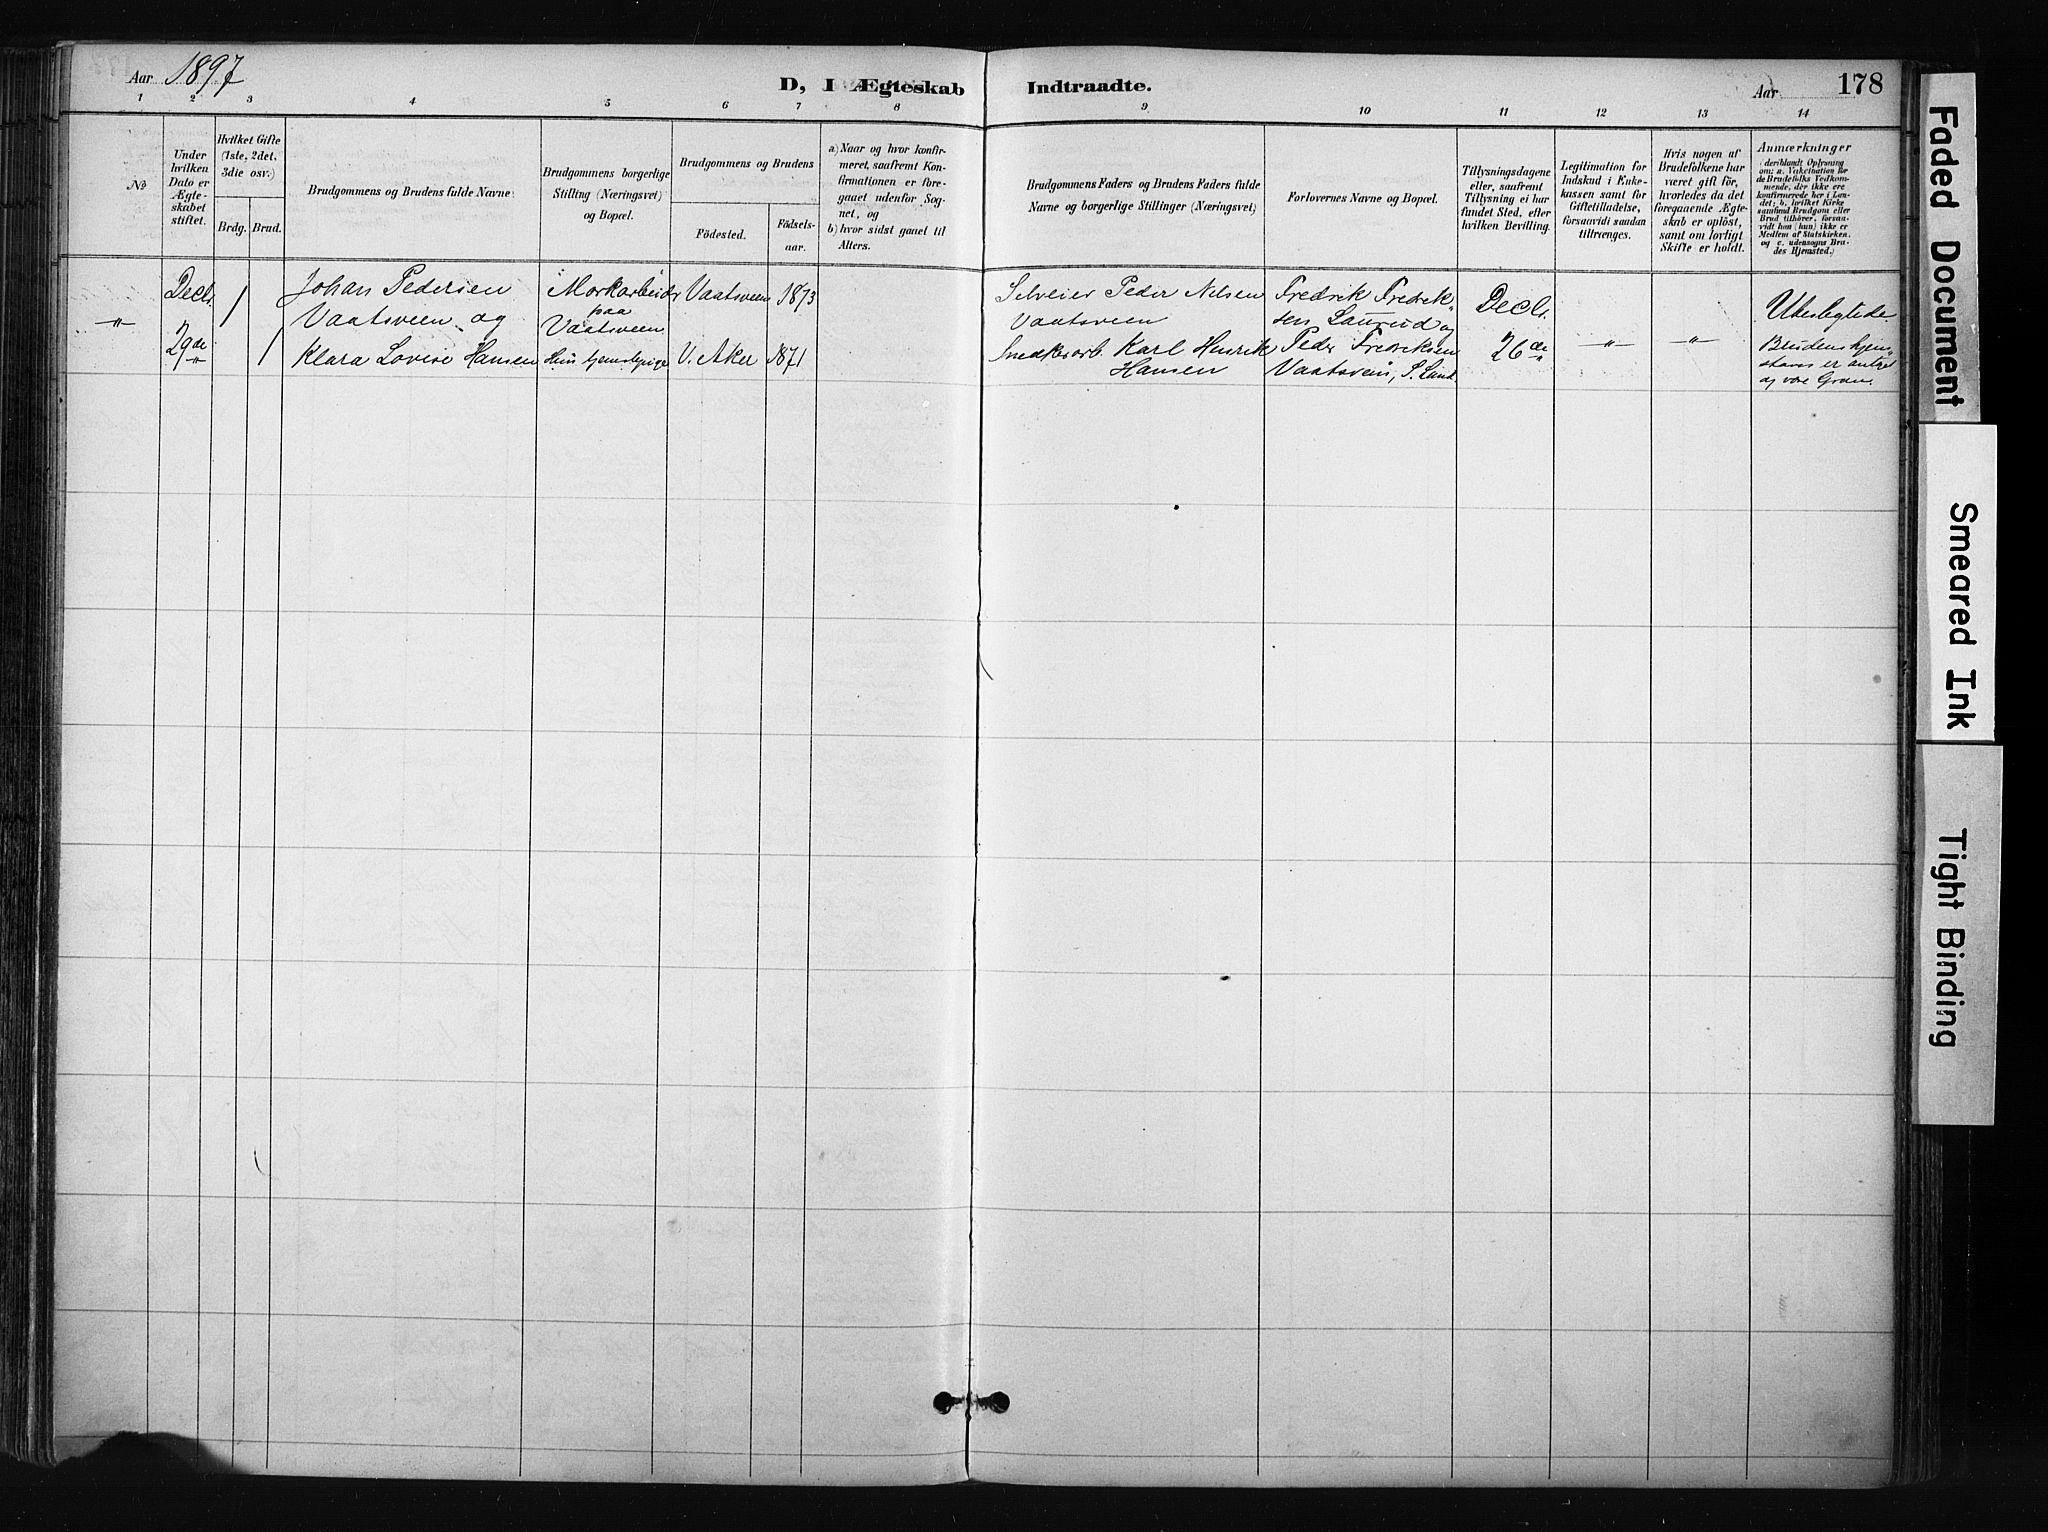 Aar 1897
D, I Ægteskab Indtraadte.
Aar 178
1 2 3 4 5 6 7 8 9 10 11 12 13 14
No
Under hvilken Dato er Ægte-skabet stiftet.
Hvilket Gifte (1ste, 2det, 3die osv.)
Brdg. Brud.
Brudgommens og Brudens fulde Navne
Brudgommens borgerlige
Stilling (Næringsvei)
og Bopæl.
Brudgommens og Brudens
Födested.
Födsels-
aar.
a) Naar og hvor konfir-
meret, saafremt Kon-
firmationen er fore-
gaaet udenfor Sog-
net, og
b) hvor sidst gaaet til
Alters.
Brudgommens Faders og Brudens Faders fulde
Navne og borgerlige Stillinger (Næringsvei)
Forlovernes Navne og Bopæl.
Tillysningsdagene
eller, saafremt
Tillysning ei har
fundet Sted, efter
hvilken Bevilling.
Legitimation for
Indskud i Enke-
kassen samt for
Giftetilladelse,
forsaavidt saadan
tiltrænges.
Hvis nogen af
Brudefolkene har
været gift för,
hvorledes da det
foregaaende Ægte-
skab er oplöst,
samt om lovligt
Skifte er holdt.
Anmærkninger
(deriblandt Oplysning
om: a. Vakcination for
de Brudefolks Vedkom-
mende, der ikke ere
konfirmerede her i Lan-
det; b. hvilket Kirke
samfund Brudgom eller
Brud tilhörer, forsaa-
vidt han (hun) ikke er
Medlem af Statskirken,
og c. udensogns Bru-
des Hjemsted.)
Decb. 1 Johan Pedersen Vaatsveen 1873 Peder Nilsen Fredrik Fredrik- Decb.
" Vaatsveen og paa Vaatsveen Vaatsveen sen Laurud og Ubeslegtede.
29de 1 Klara Lovise Hansen V. Aker 1871 Snedkerarb. Karl Henrik Peder Fredriksen 26de " " Brudens
Hansen Vaatsveen, S. Land er
og
Faded Document
Smeared Ink
Tight Binding